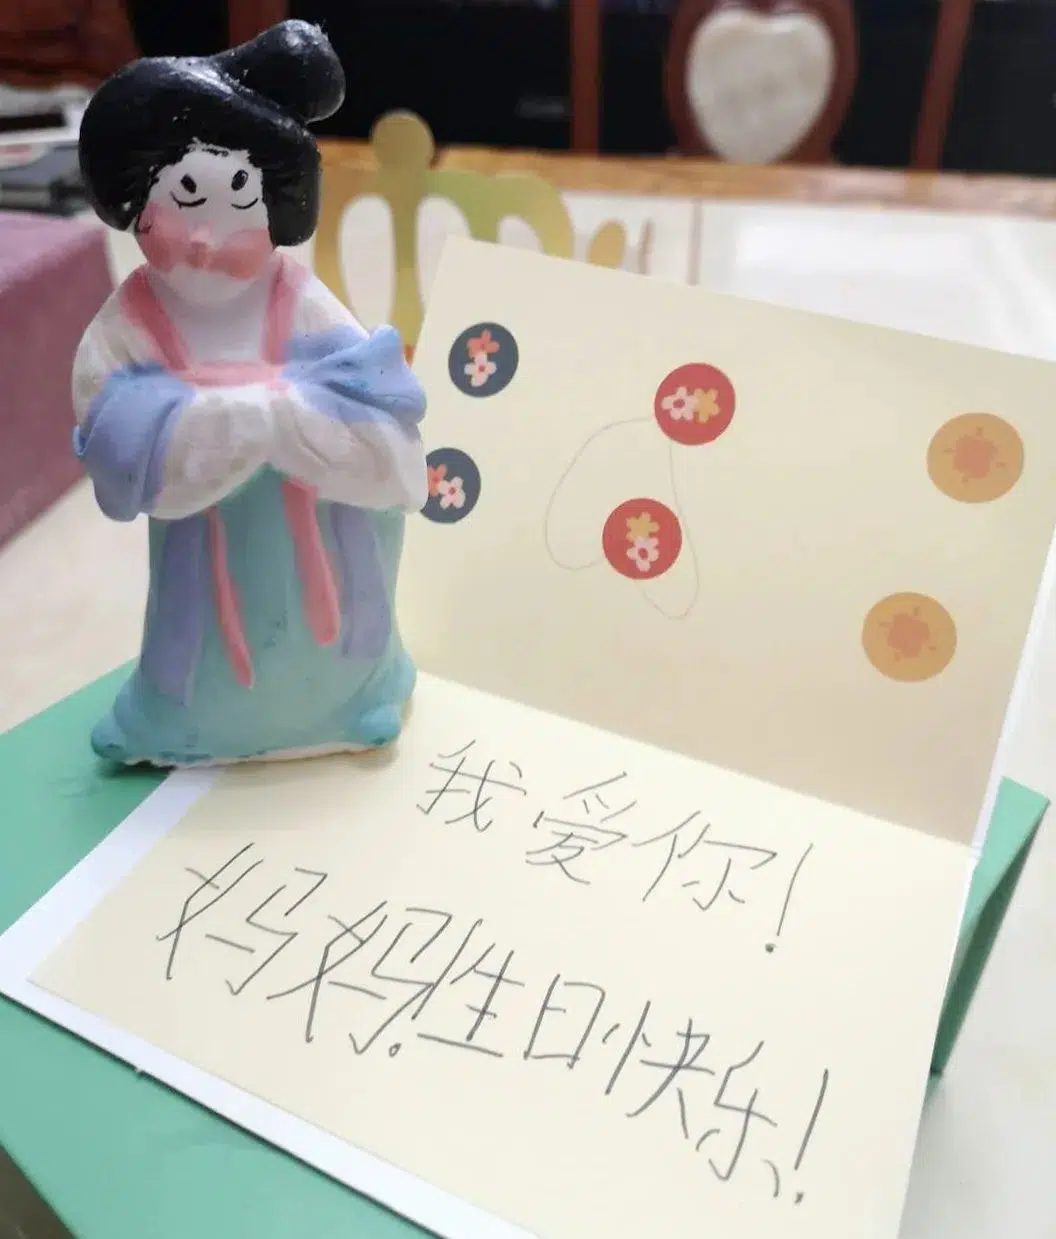 我爱你!
妈妈.生日快乐!